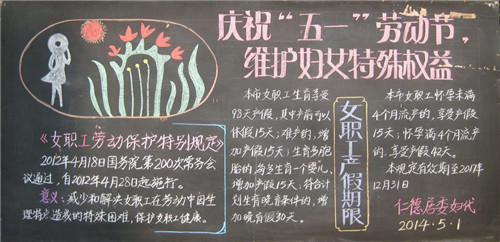 庆祝“五一”劳动节，
维护妇女特殊权益
《女职工劳动保护特别规定》
2012年4月18日国务院第200次常务会
议通过，自2012年4月28日起施行。
意义：减少和解决女职工在劳动中因生
理特点造成的特殊困难，保护女职工健康。
本市女职工生育享受
98天产假，其中产前可以
休假15天；难产的，增
加产假15天；生育多胞
胎的，每多生育一个婴儿，
增加产假15天，符合计
划生育晚育条件的，增
加晚育假30天。
女职工产假期限
本市女职工怀孕未满
4个月流产的，享受产假
15天；怀孕满4个月流产
的，享受产假42天。
本规定有效期至2017年
12月31日
仁德居委妇代
2014.5.1